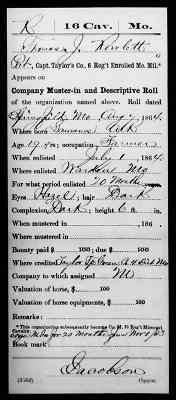 R 16 Cav. Mo.
Thomas J. Rowlett
Pvt., Capt. Taylor's Co., 6 Reg't Enrolled Mo. Mil.*
Appears on
Company Muster-in and Descriptive Roll
of the organization named above. Roll dated
Springfield Mo Aug 4, 1864.
Where born Ark
Age 19 y'rs; occupation Farmer
When enlisted July 1, 1864.
Where enlisted Mo
For what period enlisted 20 Months
Eyes Hazel; hair Dark
Complexion Dark; height 6 ft. in.
When mustered in , 186 .
Where mustered in
Bounty paid $ 100; due $ 100
Where credited Mo
Company to which assigned M
Valuation of horse, $ 100
Valuation of horse equipments, $ 100
Remarks:
* This organization subsequently became Co. M, 16 Reg't Missouri
Cavalry.
for 20 Months from Nov 1/63
Book mark:
Jacobson
(356d) Copyist.